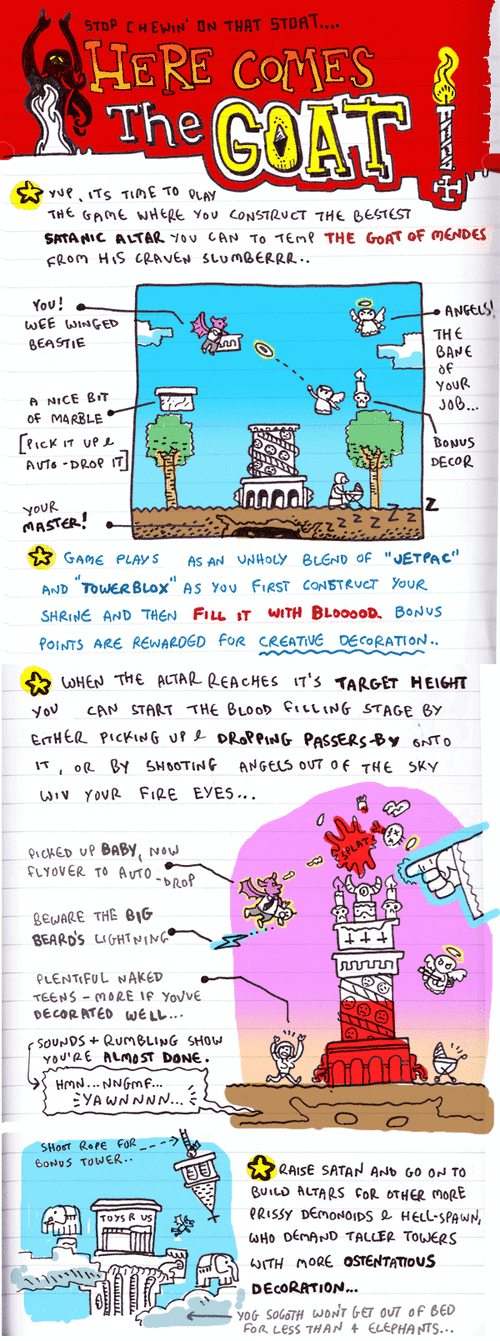 STOP CHEWIN' ON THAT STOAT....
HERE COMES
The GOAT
YUP, ITS TIME TO PLAY
THE GAME WHERE YOU CONSTRUCT THE BESTEST
SATANIC ALTAR YOU CAN TO TEMP THE GOAT OF MENDES
FROM HIS CRAVEN SLUMBERRR..
YOU!
WEE WINGED
BEASTIE
A NICE BIT
OF MARBLE
[PICK IT UP &
AUTO-DROP IT]
YOUR
MASTER!
ANGELS!
THE
BANE
OF
YOUR
JOB...
BONUS
DECOR
Z Z Z Z Z Z Z Z
GAME PLAYS AS AN UNHOLY BLEND OF "JETPAC"
AND "TOWERBLOX" AS YOU FIRST CONSTRUCT YOUR
SHRINE AND THEN FILL IT WITH BLOOOOD. BONUS
POINTS ARE REWARDED FOR CREATIVE DECORATION..
WHEN THE ALTAR REACHES IT'S TARGET HEIGHT
YOU CAN START THE BLOOD FILLING STAGE BY
EITHER PICKING UP & DROPPING PASSERS-BY ONTO
IT, OR BY SHOOTING ANGELS OUT OF THE SKY
WIV YOUR FIRE EYES...
PICKED UP BABY, NOW
FLYOVER TO AUTO-DROP
SPLAT
BEWARE THE BIG
BEARD'S LIGHTNING
PLENTIFUL NAKED
TEENS - MORE IF YOU'VE
DECORATED WELL...
SOUNDS + RUMBLING SHOW
YOU'RE ALMOST DONE.
HMN... NNGMF...
YAWNNNN...
SHOOT ROPE FOR
BONUS TOWER..
TOYS R US
RAISE SATAN AND GO ON TO
BUILD ALTARS FOR OTHER MORE
PRISSY DEMONOIDS & HELL-SPAWN,
WHO DEMAND TALLER TOWERS
WITH MORE OSTENTATIOUS
DECORATION...
YOG SOGOTH WON'T GET OUT OF BED
FOR LESS THAN 4 ELEPHANTS...